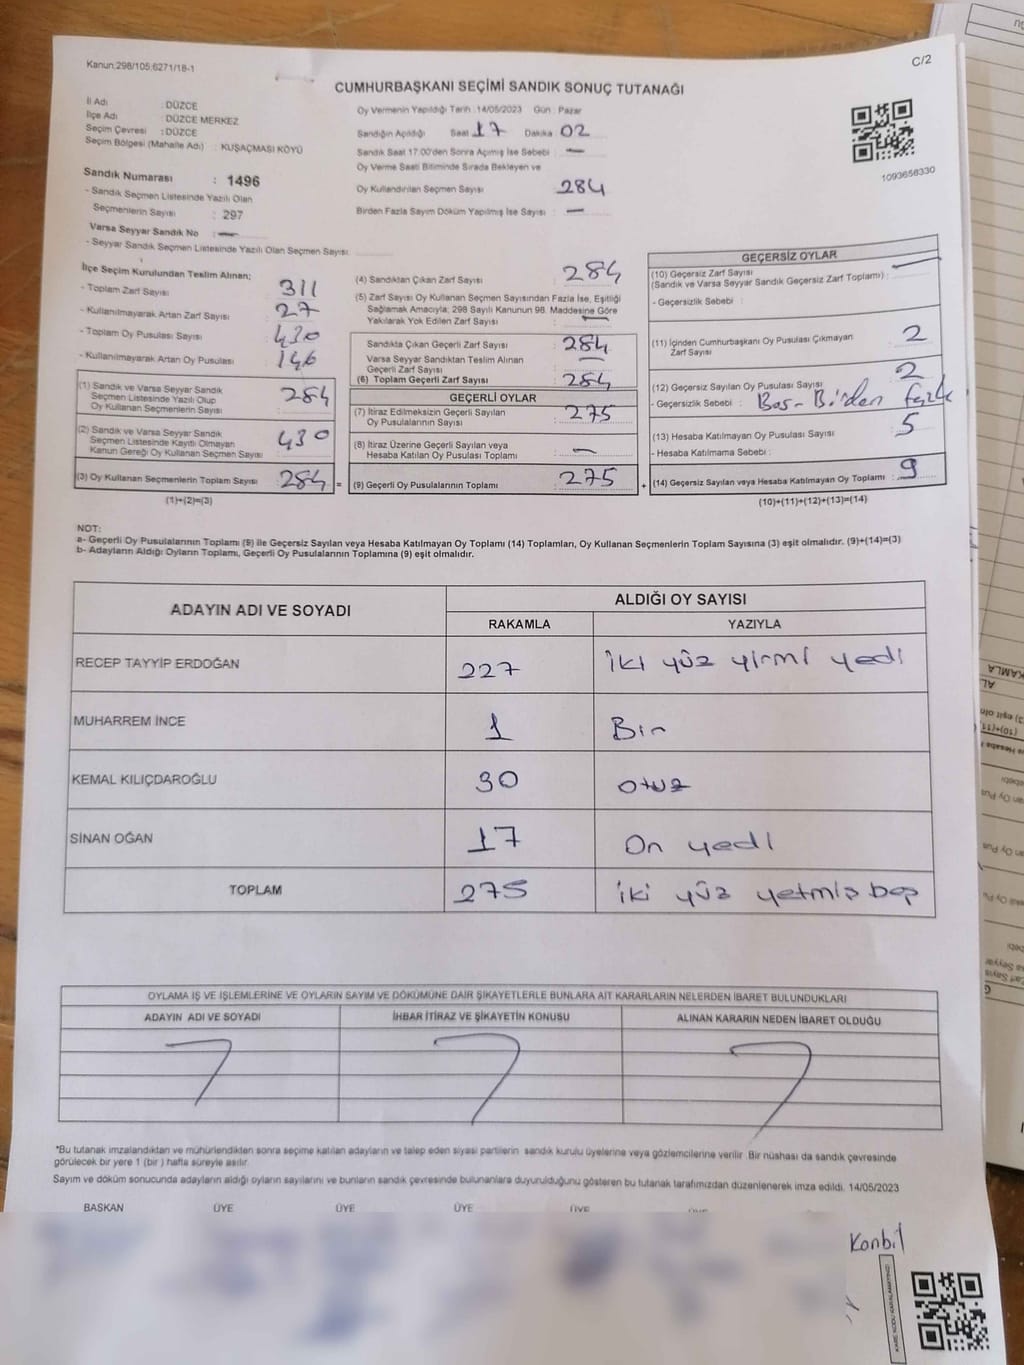 Kanun:298/105;6271/18-1
C/2
CUMHURBAŞKANI SEÇİMİ SANDIK SONUÇ TUTANAĞI
İl Adı : DÜZCE
İlçe Adı : DÜZCE MERKEZ
Seçim Çevresi : DÜZCE
Seçim Bölgesi (Mahalle Adı) : KUŞAÇMASI KÖYÜ
Sandık Numarası : 1496
- Sandık Seçmen Listesinde Yazılı Olan
Seçmenlerin Sayısı : 297
Varsa Seyyar Sandık No : —
- Seyyar Sandık Seçmen Listesinde Yazılı Olan Seçmen Sayısı
Oy Vermenin Yapıldığı Tarih :14/05/2023 Gün : Pazar
Sandığın Açıldığı Saat 17 Dakika : 02
Sandık Saat 17:00'den Sonra Açılmış İse Sebebi : —
Oy Verme Saati Bitiminde Sırada Bekleyen ve
Oy Kullandırılan Seçmen Sayısı 284
Birden Fazla Sayım Döküm Yapılmış İse Sayısı : —
1093656330
İlçe Seçim Kurulundan Teslim Alınan;
- Toplam Zarf Sayısı : 311
- Kullanılmayarak Artan Zarf Sayısı : 27
- Toplam Oy Pusulası Sayısı : 430
- Kullanılmayarak Artan Oy Pusulası : 146
(1) Sandık ve Varsa Seyyar Sandık
Seçmen Listesinde Yazılı Olup
Oy Kullanan Seçmenlerin Sayısı : 284
(2) Sandık ve Varsa Seyyar Sandık
Seçmen Listesinde Kayıtlı Olmayan
Kanun Gereği Oy Kullanan Seçmen Sayısı : 430
(3) Oy Kullanan Seçmenlerin Toplam Sayısı : 284 =
(1)+(2)=(3)
(4) Sandıktan Çıkan Zarf Sayısı : 284
(5) Zarf Sayısı Oy Kullanan Seçmen Sayısından Fazla İse, Eşitliği
Sağlamak Amacıyla; 298 Sayılı Kanunun 98. Maddesine Göre
Yakılarak Yok Edilen Zarf Sayısı : —
Sandıkta Çıkan Geçerli Zarf Sayısı : 284
Varsa Seyyar Sandıktan Teslim Alınan
Geçerli Zarf Sayısı : —
(6) Toplam Geçerli Zarf Sayısı : 284
GEÇERLİ OYLAR
(7) İtiraz Edilmeksizin Geçerli Sayılan
Oy Pusulalarının Sayısı : 275
(8) İtiraz Üzerine Geçerli Sayılan veya
Hesaba Katılan Oy Pusulası Toplamı : —
(9) Geçerli Oy Pusulalarının Toplamı : 275 +
GEÇERSİZ OYLAR
(10) Geçersiz Zarf Sayısı
(Sandık ve Varsa Seyyar Sandık Geçersiz Zarf Toplamı) : —
- Geçersizlik Sebebi :
(11) İçinden Cumhurbaşkanı Oy Pusulası Çıkmayan
Zarf Sayısı : 2
(12) Geçersiz Sayılan Oy Pusulası Sayısı : 2
- Geçersizlik Sebebi : Boş-Birden fazla
(13) Hesaba Katılmayan Oy Pusulası Sayısı : 5
- Hesaba Katılmama Sebebi :
(14) Geçersiz Sayılan veya Hesaba Katılmayan Oy Toplamı : 9
(10)+(11)+(12)+(13)=(14)
NOT:
a- Geçerli Oy Pusulalarının Toplamı (9) ile Geçersiz Sayılan veya Hesaba Katılmayan Oy Toplamı (14) Toplamları, Oy Kullanan Seçmenlerin Toplam Sayısına (3) eşit olmalıdır. (9)+(14)=(3)
b- Adayların Aldığı Oyların Toplamı, Geçerli Oy Pusulalarının Toplamına (9) eşit olmalıdır.
ADAYIN ADI VE SOYADI
ALDIĞI OY SAYISI
RAKAMLA YAZIYLA
RECEP TAYYİP ERDOĞAN 227 iki yüz yirmi yedi
MUHARREM İNCE 1 Bir
KEMAL KILIÇDAROĞLU 30 otuz
SİNAN OĞAN 17 On yedi
TOPLAM 275 iki yüz yetmiş beş
OYLAMA İŞ VE İŞLEMLERİNE VE OYLARIN SAYIM VE DÖKÜMÜNE DAİR ŞİKAYETLERLE BUNLARA AİT KARARLARIN NELERDEN İBARET BULUNDUKLARI
ADAYIN ADI VE SOYADI İHBAR İTİRAZ VE ŞİKAYETİN KONUSU ALINAN KARARIN NEDEN İBARET OLDUĞU
*Bu tutanak imzalandıktan ve mühürlendikten sonra seçime katılan adayların ve talep eden siyasi partilerin sandık kurulu üyelerine veya gözlemcilerine verilir. Bir nüshası da sandık çevresinde
görülecek bir yere 1 (bir ) hafta süreyle asılır.
Sayım ve döküm sonucunda adayların aldığı oyların sayılarını ve bunların sandık çevresinde bulunanlara duyurulduğunu gösteren bu tutanak tarafımızdan düzenlenerek imza edildi. 14/05/2023
BAŞKAN ÜYE ÜYE ÜYE ÜYE